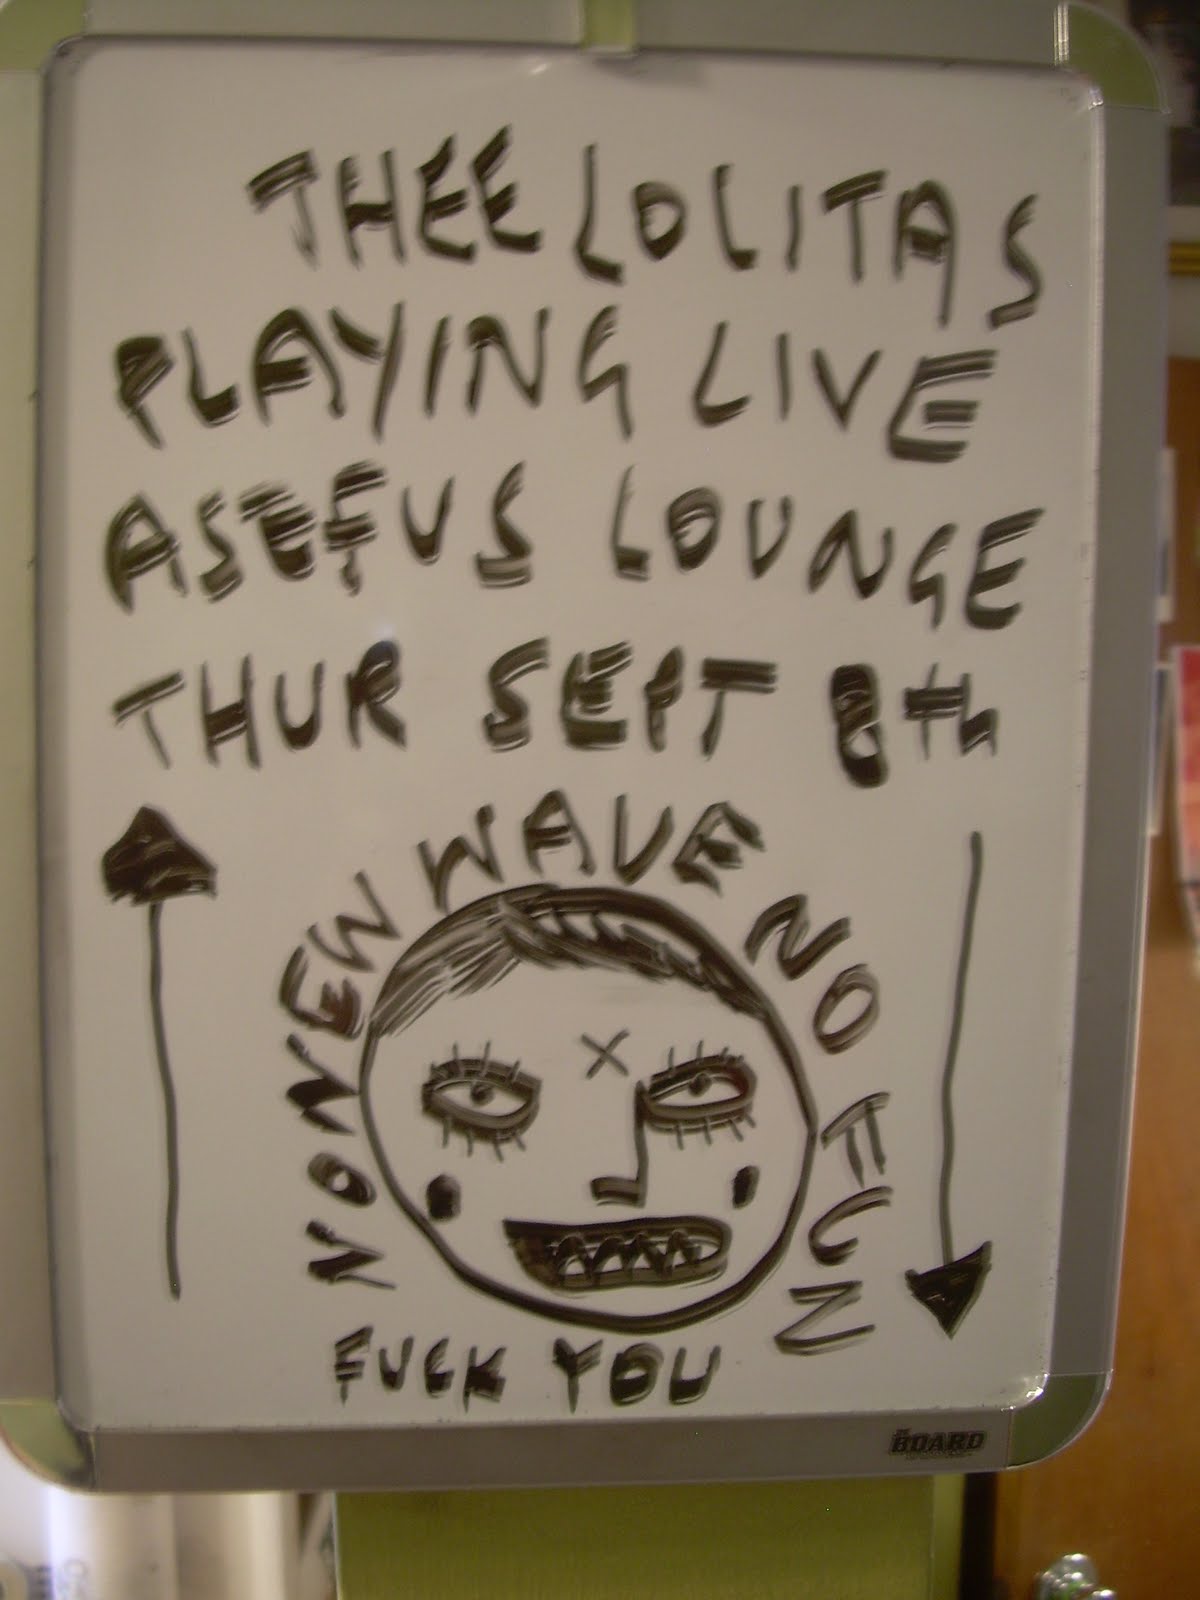 THEE LOLITAS
PLAYING LIVE
ASEFUS LOUNGE
THUR SEPT 8th
NO NEW WAVE NO FUN
FUCK YOU
BOARD